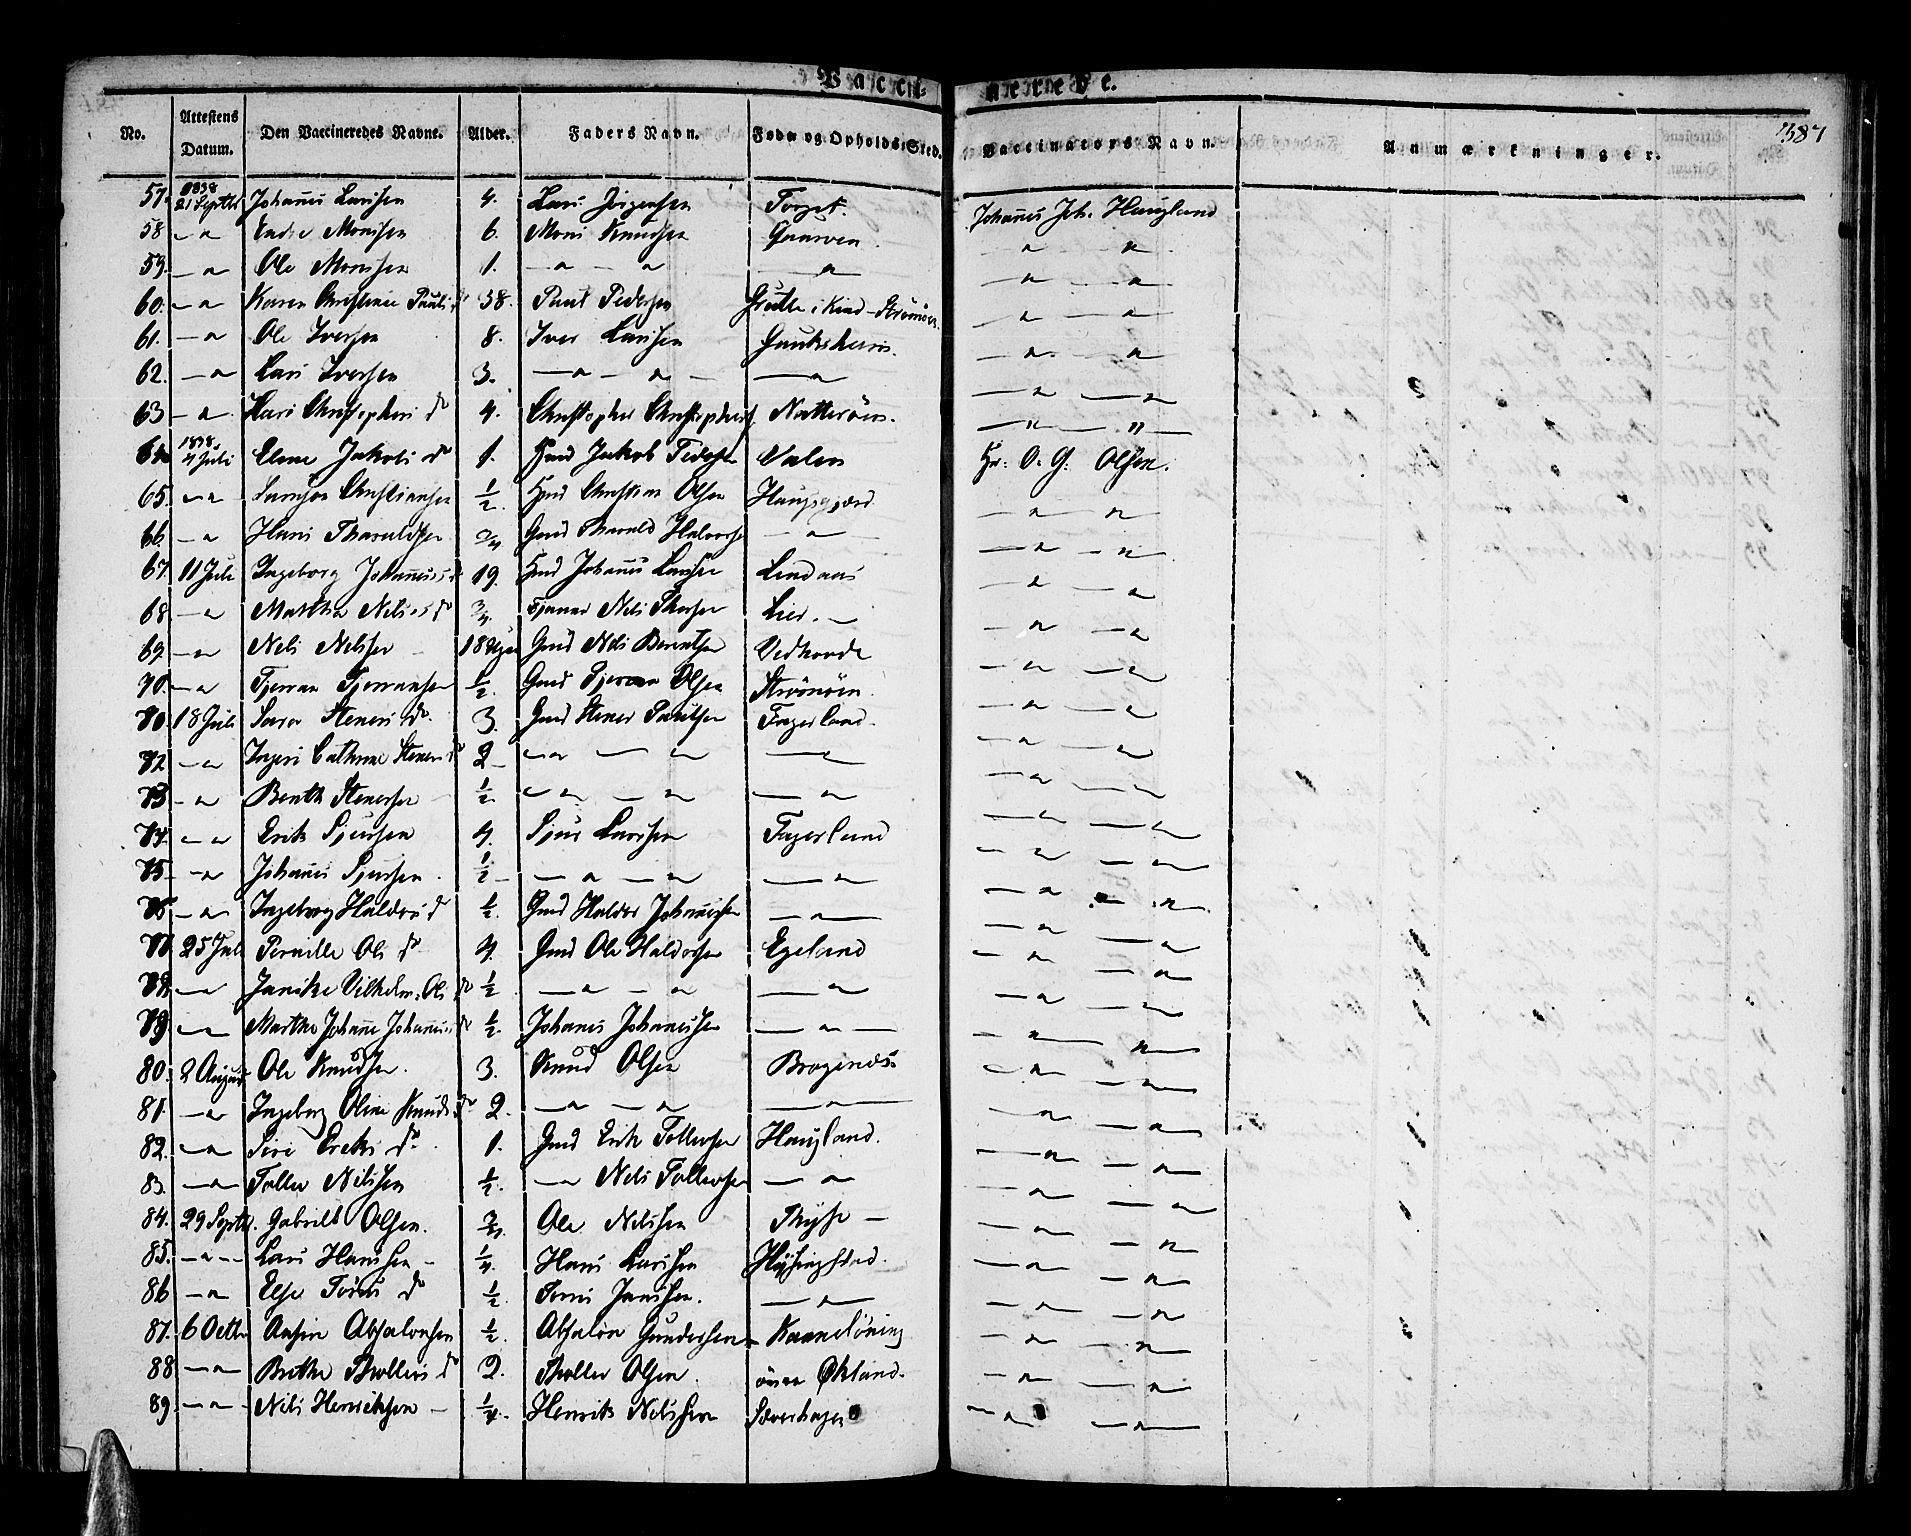 Vacci- nerede.
387
No. Attestens Datum. Den Vaccineredes Navne. Alder. Faders Navn. Føde og Opholds-Sted. Vaccinateurs Navn. Anmærkninger.
57. 1838 21 Septbr Johanes Larssen 4. Lars Jörgensen Torget. Johanes Joh. Haugland
58 — " Endre Monssen 6. Mons Knudsen — " — "
59. — " Ole Monssen 1. — " — " — " — " — "
60. — " Karen Christine Pauls dr 38. Paul Pedersen — " — "
61. — " Ole Iversen 8. Iver Larssen — " — "
62. — " Lars Iversen 3. — " — " — — " — " — "
63 — " Kari Christophers dr 4. Christopher Christophers Natterøen. — " — "
64 1838 4 Juli Elene Jakobs dr 1. Hmd Jakob Peders Valen Hr: O. G. Olsen.
65. — " Christiansen 1/2. Hmd Christian Olsen — " — "
66 — " Hans Tharaldsen 3/4 Gmd Tharald Halvors — " — — " — "
67. 11 Juli Ingeborg Johannes d 19. Hmd Johanes Larssen Lindaas — " — "
68 — " Martha Nils dr 3/4. Nils Lier. — — " — "
69. — " Nels Nelssen 18 Uger Gmd Nels Berentsen Vedkovde — " — "
70. — " Tjerran Tjerransen 1/2. Gmd Tjerran Olsen Strönöen. — " — "
71. 18 Juli Sara Steners dr. 3. Gmd Stener Paulsen Fagerland. — " — "
72 — " Ingeri Cathrine Steners dr 2 — — " — — " — " — " — "
73 — " Benth Stenersen 1/2. — " — " — " — " — "
74. — " Erik Sjursen 4. Sjur Larssen Fagerland — " — "
75 — " Johanes Sjursen. 1/2 — — " — " — " — " — "
76 — " Ingeborg Haldors d 1/2. Gmd Haldor Johannesen — " — — " — "
77 25 Juli Pernille Ols dr 4. Gmd Ole Haldorsen Egeland — " — "
78. — " Janike Vilhelm. Ols dr 1/2 — " — " — " — " — "
79 — " Martha Johane Johannes dr 1/2. Johanes Johanesen — " — — " — "
80. 2 August Ole Knudsen. 3. Knud Olsen — " — "
81. — " Ingeborg Oline Knuds dr 2. — " — " — " — — " — "
82. — " Siri Ereks dr. 1. Gmd Erik Tollevsen Haugland. — " — "
83. — " Tollev Nilssen 1/2. — " Nils Tollevsen — " — " — "
84. 29 Septb. Gabriels Olsen. 3/4. Ole Nilssen — " — "
85. — " — Lars Hanssen — 1/4. Hans Larssen — " — "
86 — " Else Tönis d 1/2. Tönis Janssen. — " — — " — "
87. 6 Octbr Absalonsen 1/2. Absalon Gundersen — " — "
88 — " Brithe Thollevs dr 2. Thollev Olsen. övre Økland. — " — "
89. — " — Nils Henriksen — 1/4. Henrik Nilssen — " — "